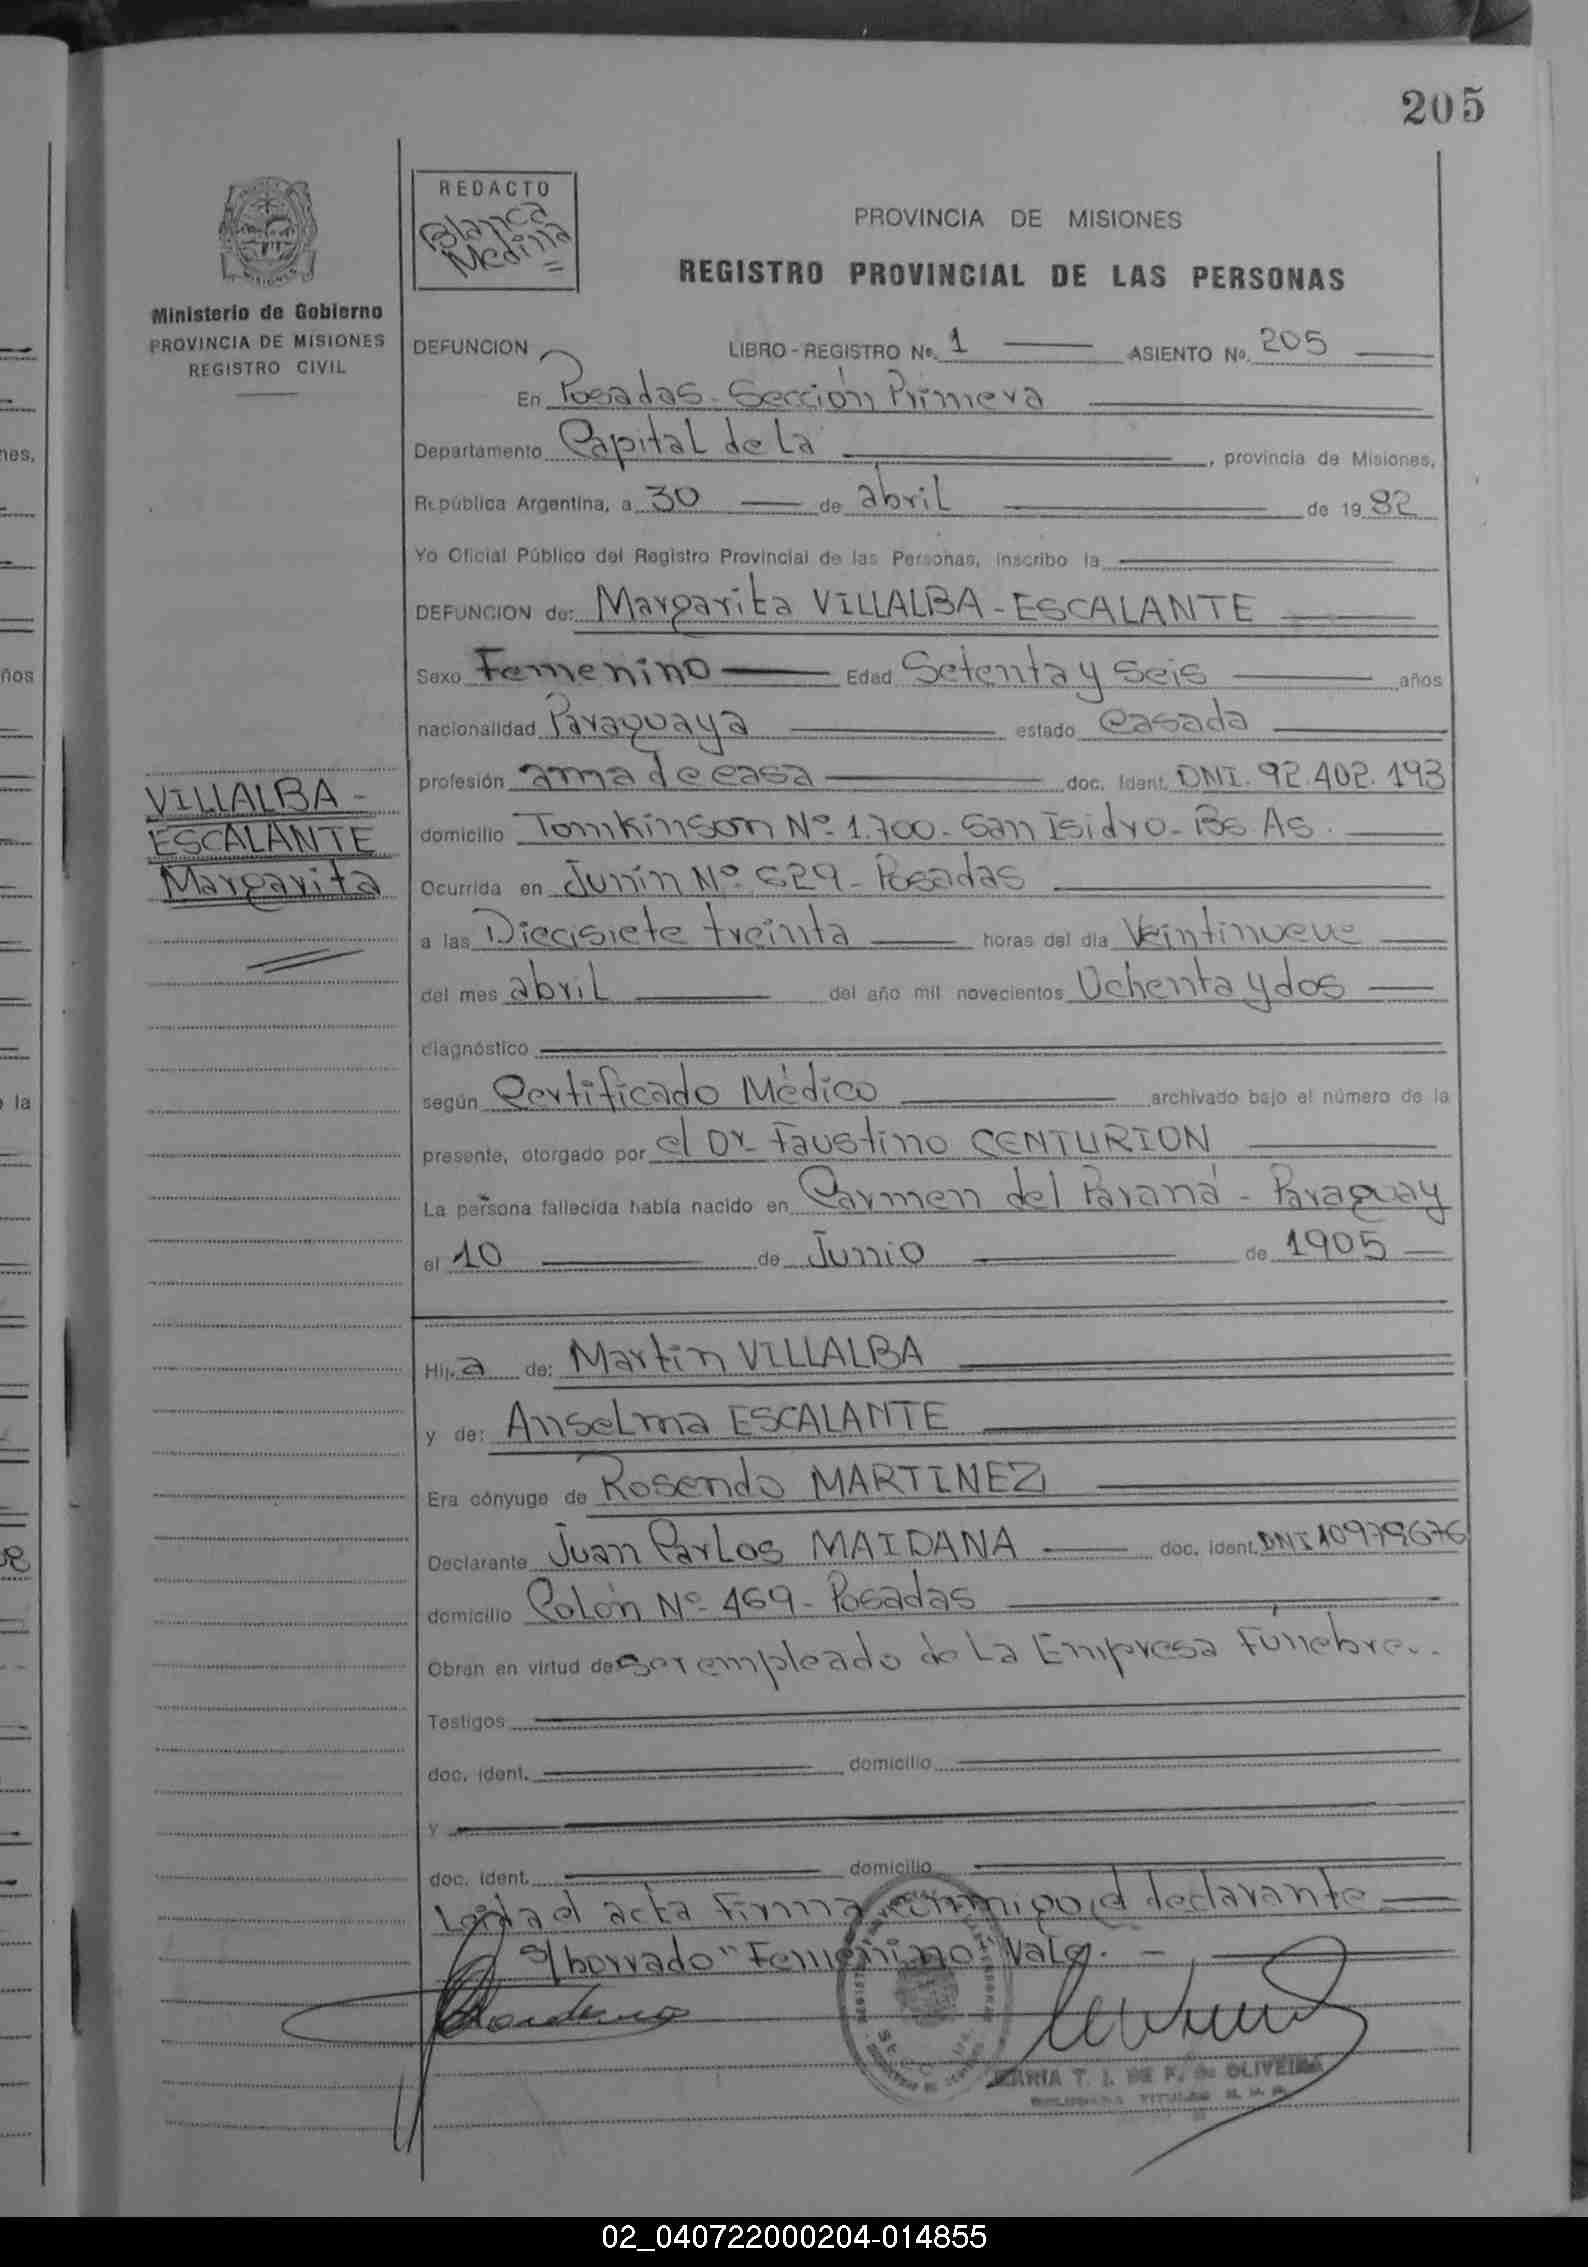 205
REDACTO
Blanca
Medina
PROVINCIA DE MISIONES
REGISTRO PROVINCIAL DE LAS PERSONAS
Ministerio de Gobierno
PROVINCIA DE MISIONES
REGISTRO CIVIL
DEFUNCION LIBRO - REGISTRO Nº. 1 ASIENTO Nº. 205
En Posadas - Sección Primera
Departamento Capital de La , provincia de Misiones,
República Argentina, a 30 de abril de 1982
Yo Oficial Público del Registro Provincial de las Personas, inscribo la
DEFUNCION de: Margarita VILLALBA - ESCALANTE
Sexo Femenino Edad Setenta y Seis años
nacionalidad Paraguaya estado Casada
profesión ama de casa doc. Ident. DNI. 92.402.193
VILLALBA -
ESCALANTE
Margarita
domicilio Tomkinson Nº 1.700 - San Isidro - Bs As.
Ocurrida en Junín Nº 629 - Posadas
a las Diecisiete treinta horas del día Veintinueve
del mes abril del año mil novecientos Ochenta y dos
diagnóstico
según Certificado Médico archivado bajo el número de la
presente, otorgado por el Dr Faustino CENTURION
La persona fallecida había nacido en Carmen del Paraná - Paraguay
el 10 de Junio de 1905
Hija de: Martin VILLALBA
y de: Anselma ESCALANTE
Era cónyuge de Rosendo MARTINEZ
Declarante Juan Carlos MAIDANA doc. ident. DNI 10979676
domicilio Colón Nº 469 - Posadas
Obran en virtud de ser empleado de La Empresa Fúnebre..
Testigos
doc. ident. domicilio
y
doc. ident. domicilio
Leída el acta firma conmigo el declarante
s/borrado "Femenino" Vale. -
MARIA T. I. DE F. de OLIVEIRA
02_040722000204-014855